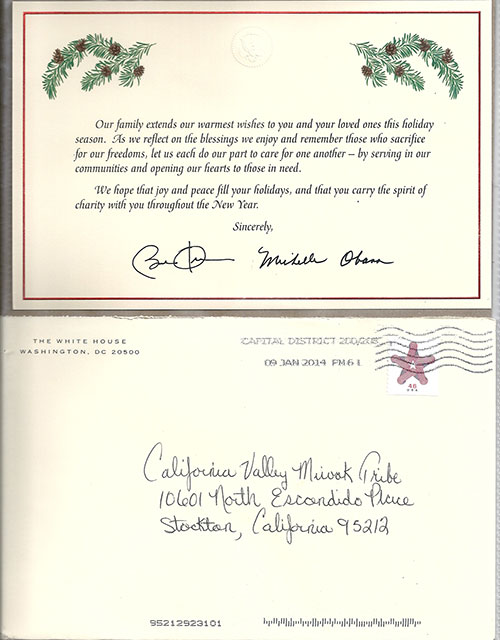 Our family extends our warmest wishes to you and your loved ones this holiday
season. As we reflect on the blessings we enjoy and remember those who sacrifice
for our freedoms, let us each do our part to care for one another – by serving in our
communities and opening our hearts to those in need.
We hope that joy and peace fill your holidays, and that you carry the spirit of
charity with you throughout the New Year.
Sincerely,
Michelle Obama
THE WHITE HOUSE
WASHINGTON, DC 20500
CAPITAL DISTRICT
09 JAN 2014 PM 6 L
46
California Valley Miwok Tribe
10601 North Escondido Place
Stockton, California 95212
95212923101